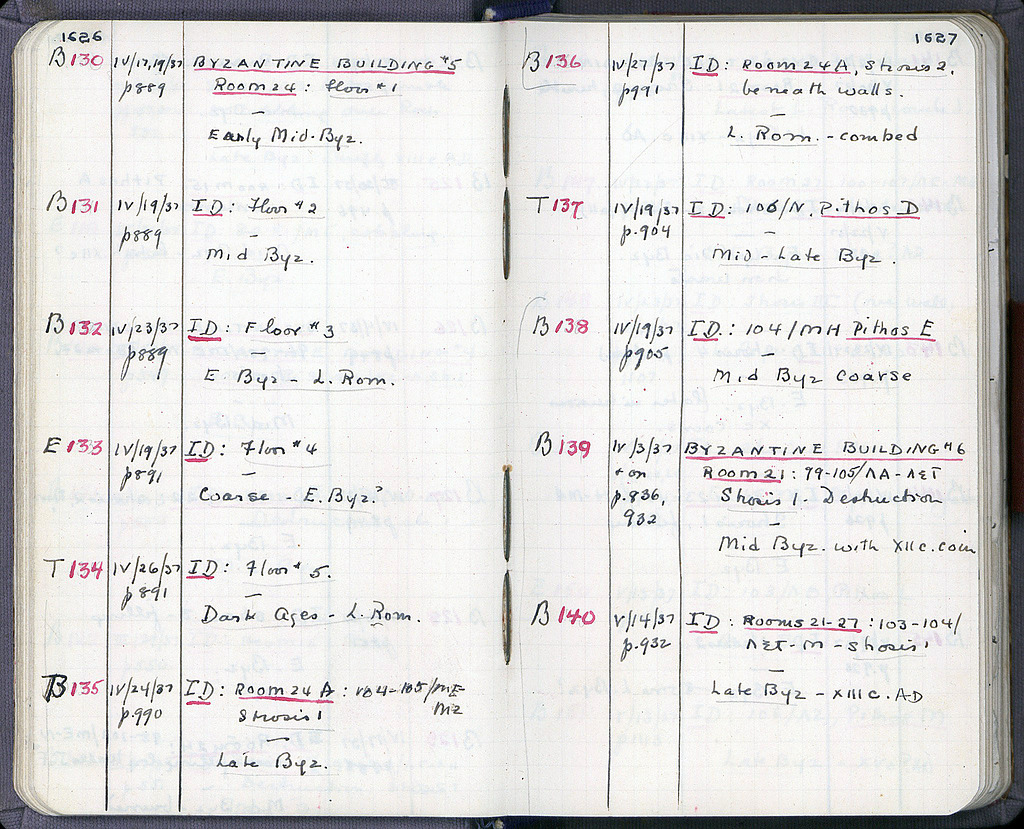 1626
B130 IV/17,19/37 BYZANTINE BUILDING #5
p889 Room 24: floor #1
—
Early Mid-Byz.
B131 IV/19/37 ID: Floor #2
p889
—
Mid Byz.
B132 IV/23/37 ID: Floor #3
p889
—
E Byz - L. Rom.
E 133 IV/19/37 ID: Floor #4
p891
—
Coarse - E. Byz?
T 134 IV/26/37 ID: Floor #5.
p891
—
Dark Ages - L. Rom.
B135 IV/24/37 ID: Room 24 A: 104-105/ME
p.990 Strosis 1 MZ
—
Late Byz.
1627
B136 IV/27/37 ID: Room 24A, Strosis 2,
p991 beneath walls.
—
L. Rom. - combed
T 137 IV/19/37 ID: 106/N. Pithos D
p.904
—
Mid - Late Byz.
B138 IV/19/37 ID.: 104/MH Pithos E
p905
—
Mid Byz Coarse
B139 IV/3/37 BYZANTINE BUILDING #6
+ on Room 21: 99-105/ΛA-ΛΣΤ
p.836, Strosis 1. Destruction
932
—
Mid Byz. with XII c. coin
B140 V/14/37 ID: Rooms 21-27: 103-104/
p.932 ΛΣΤ-M - Strosis 1
—
Late Byz - XIII c. AD